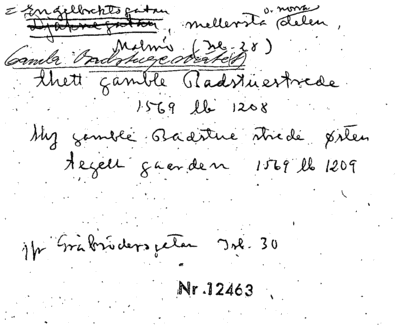 = Engelbrektsgatan o. norra
Djäknegatan, mellersta delen,
Malmö (Isb. 28)
Gamla Badstugesträtet
thett gamble Badstuestrede
1569 lb 1208
thz gamble Badstue strede østen
tegell gaarden 1569 lb 1209
jfr Gråbrödersgatan Isb. 30
Nr.12463